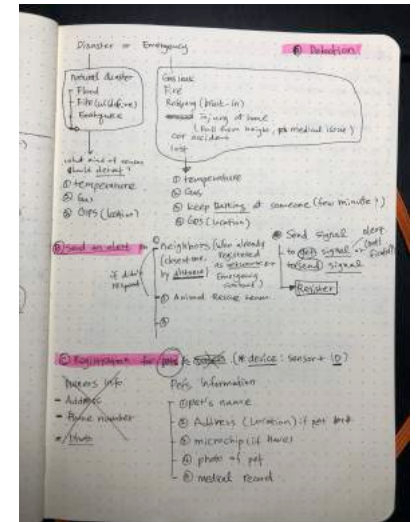 Disaster or Emergency
Ⓐ Detection
natural disaster
- Flood
- Fire (wildfire)
- Earthquake
Gas leak
Fire
Robbery (break-in)
injury at home
(fall from height, medical issue)
car accident
lost
what kind of sensors
should detect?
① temperature
② Gas
③ GPS (location)
① temperature
② Gas
③ keep barking at someone (few minute?)
④ GPS (location)
Ⓑ Send an alert
① neighbors (who already
(closest one registered
by distance) as
Emergency
contact)
if didn't
respond
② Animal Rescue team
③
Send signal
to get signal
to send signal
alert
→ Register
Ⓒ Registration for pets (* device: sensor + ID)
Owners info
- Address
- Phone number
Pet's Information
- ① pet's name
- ② Address (Location) if pet
- ③ microchip (if have)
- ④ photo of pet
- ⑤ medical record